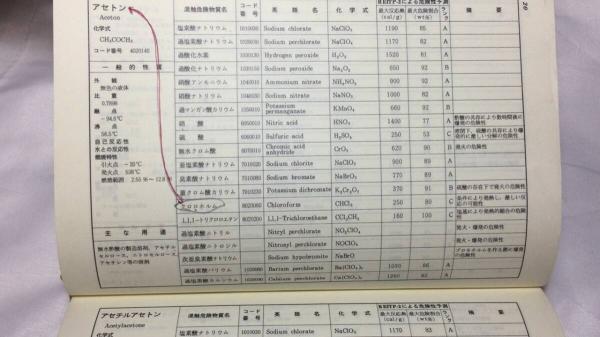 アセトン
Aceton
化学式
CH₃COCH₃
コード番号 4020140
一般的性質
外観
無色の液体
比重
0.7898
融点
－94.6℃
沸点
56.5℃
自己反応性
水との反応性
燃焼特性
引火点 －20℃
発火点 538℃
燃焼範囲
主な用途
無水酢酸の製造溶剤，アセチル
セルロース，ニトロセルロース，
アセチレン等の溶剤
混触危険物質名 コード番号 英語名 化学式 REITP-2による危険性予測 最大反応熱(cal/g) 最大危険割合(wt%) ランク 摘要
20
塩素酸ナトリウム 1010020 Sodium chlorate NaClO₃ 1190 85 A
過塩素酸ナトリウム Sodium perchlorate NaClO₄ 1170 82 A
過酸化水素 Hydrogen peroxide H₂O₂ 1520 81 A
過酸化ナトリウム Sodium peroxide Na₂O₂ 650 92 B
硝酸アンモニウム 1040010 Ammonium nitrate NH₄NO₃ 900 92 A
硝酸ナトリウム Sodium nitrate NaNO₃ 1000 82 A
過マンガン酸カリウム 1050010 Potassium permanganate KMnO₄ 660 92 B
硝酸 Nitric acid HNO₃ 1400 77 A 硫酸の共存により数時間後に爆発の危険性
硫酸 Sulfuric acid H₂SO₄ 250 53 C 密閉下，硫酸の共存により爆発的に激しい分解の危険性
無水クロム酸 Chromic acid anhydride CrO₃ 620 90 B 発火の危険性
亜塩素酸ナトリウム Sodium chlorite NaClO₂ 900 89 A
臭素酸ナトリウム Sodium bromate NaBrO₃ 770 89 A
重クロム酸カリウム Potassium dichromate K₂Cr₂O₇ 370 91 B 硫酸の存在下で発火の危険性
クロロホルム Chloroform CHCl₃ 250 80 C 条件により発熱し，激しい反応の可能性
1,1,1-トリクロロエタン 1,1,1-Trichloroethane 160 100 C 塩基により発熱的縮合の危険性
過塩素酸ニトリル Nitryl perchlorate 発火・爆発の危険性
過塩素酸ニトロシル Nitrosyl perchlorate NOClO₄ 発火・爆発の危険性
次亜臭素酸ナトリウム Sodium hypobromite NaBrO ブロモホルムを作る際に爆発の危険性
過塩素酸バリウム Barium perchlorate Ba(ClO₄)₂ A
過塩素酸カルシウム Calcium perchlorate A
アセチルアセトン
Acetylacetone
化学式
混触危険物質名 コード番号 英語名 化学式 REITP-2による危険性予測 最大反応熱(cal/g) 最大危険割合(wt%) ランク 摘要
塩素酸ナトリウム 1010020 Sodium chlorate NaClO₃ 1170 83 A